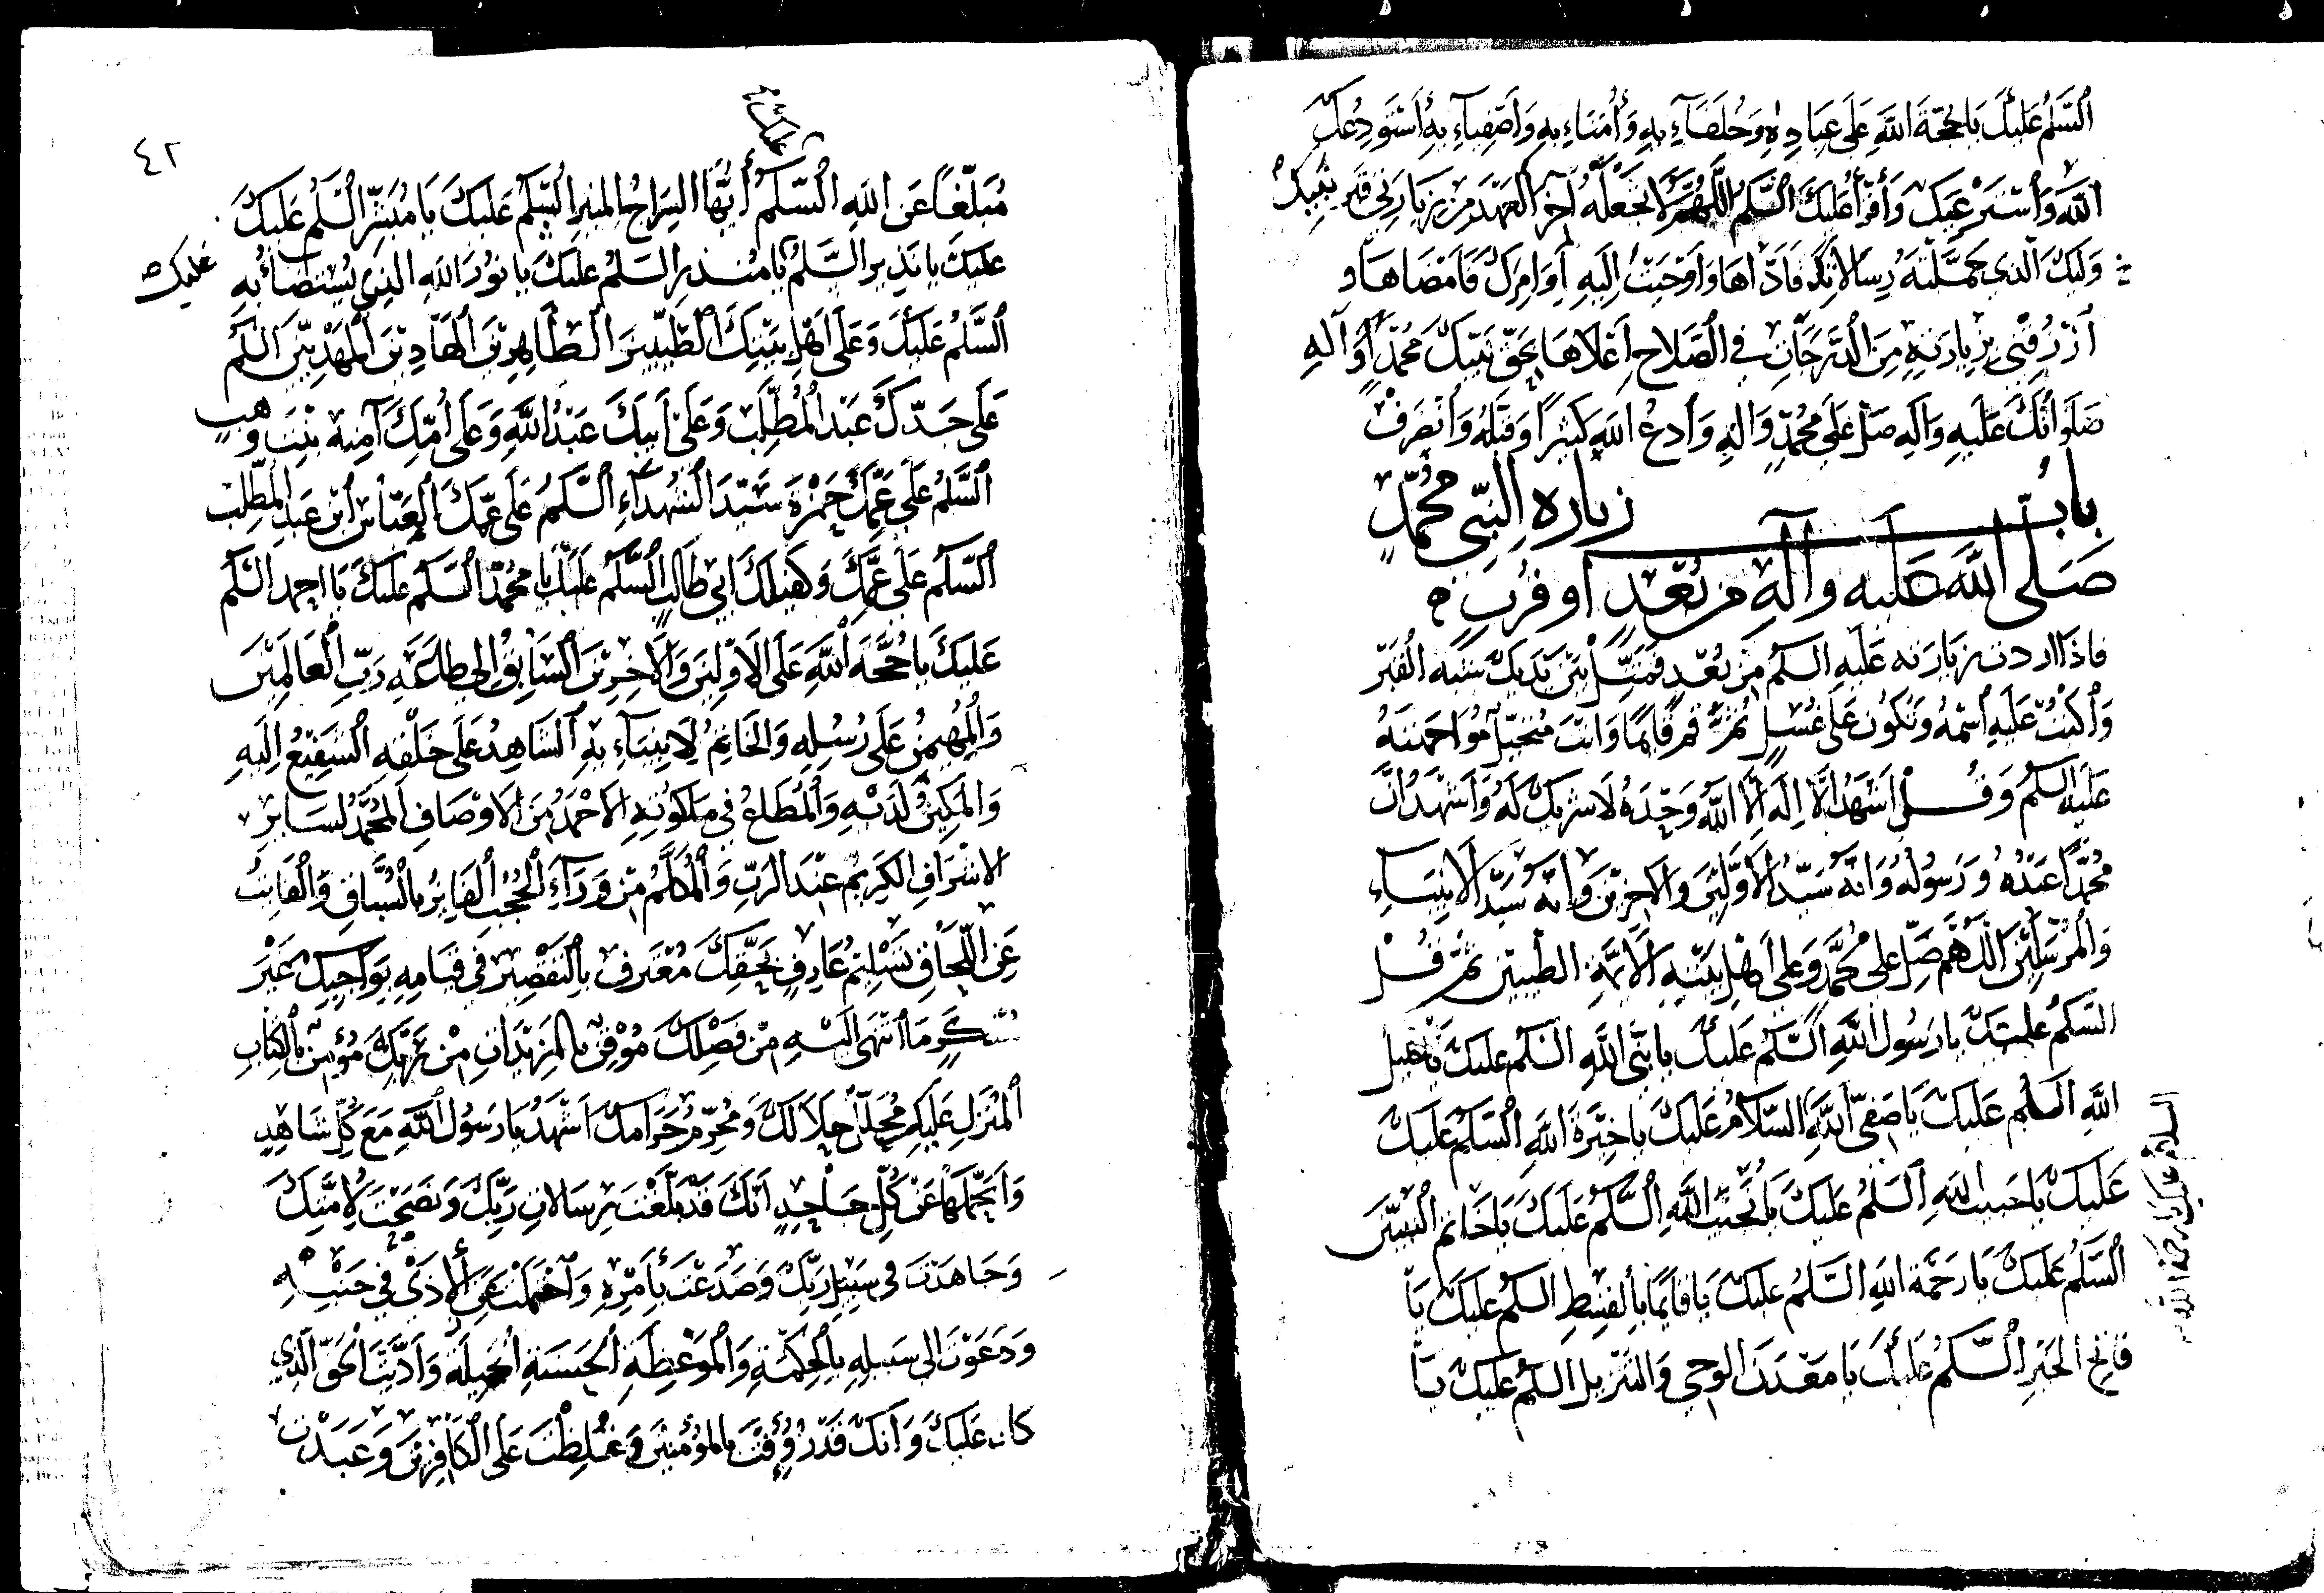 السَّلَمُ عَلَيْكَ يَا حُجَّةَ اللَّهِ عَلَى عِبَادِهِ وَخُلَفَآءِ بِهِ وَأُمَنَاءِ بِهِ وَأَصْفِيَآءِ بِهِ أَسْتَوْدِعُكَ
اللَّهَ وَأَسْتَرْعِيكَ وَأَقْرَأُ عَلَيْكَ السَّلَمُ اللَّهُمَّ لَا تَجْعَلْهُ آخِرَ الْعَهْدِ مِنْ زِيَارَتِي قَبْرِ نَبِيِّكَ
وَلِيِّكَ الَّذِي حَمَّلْتَهُ رِسَالَاتِكَ فَأَدَّاهَا وَأَوْحَيْتَ إِلَيْهِ أَوَامِرَكَ فَأَمْضَاهَا و
ٱرْزُقْنِي بِزِيَارَتِهِ مِنَ الدَّرَجَاتِ فِي الصَّلَاحِ أَعْلَاهَا بِحَقِّ نَبِيِّكَ مُحَمَّدٍ وَآلِهِ
صَلَوَاتُكَ عَلَيْهِ وَآلِهِ صَلِّ عَلَى مُحَمَّدٍ وَآلِهِ وَادْعُ اللَّهَ كَثِيرًا وَقَبِّلْهُ وَانْصَرِفْ
بابُ زيارة النبي محمدٍ
صَلَّى اللَّه عَلَيه وآلِهِ من بُعْدٍ او قُربٍ
فاذا اردت زيارته عليه السلم من بُعْدٍ فَمَثِّلْ بَيْنَ يَدَيْكَ شبه القَبْر
وَاكْتُبْ عَلَيْهِ اسْمَهُ وَتَكُون عَلَى غُسْلٍ ثُمَّ قُمْ قَائِمًا وَانتَ مُتَخَيِّل مُوَاجَهَتهُ
عَلَيْهِ السلم وَقُلْ أَشْهَدُ أَن لَّا إِلَهَ إِلَّا اللَّهُ وَحْدَهُ لَا شَرِيكَ لَهُ وَأَشْهَدُ أَنَّ
مُحَمَّدًا عَبْدُهُ وَرَسُولُهُ وَأَنَّهُ سَيِّدُ الْأَوَّلِينَ وَالْآخِرِينَ وَأَنَّهُ سَيِّدُ الْأَنْبِيَاءِ
وَالْمُرْسَلِينَ اللَّهُمَّ صَلِّ عَلَى مُحَمَّدٍ وَعَلَى أَهْلِ بَيْتِهِ الْأَئِمَّةِ الطَّيِّبِين ثُمَّ قُلْ
السَّلَمُ عليك يا رَسُولَ اللَّهِ السَّلَمُ عَلَيْكَ يا نَبِيَّ اللَّهِ السَّلَمُ عَلَيْكَ يَا خَلِيلَ
اللَّهِ السَّلَمُ عَلَيْكَ يَا صَفِيَّ اللَّهِ السَّلَامُ عَلَيْكَ يَا خِيَرَةَ اللَّهِ السَّلَمُ عَلَيْكَ
عَلَيْكَ يَا حَبِيبَ اللَّهِ السَّلَمُ عَلَيْكَ يَا نَجِيبَ اللَّهِ السَّلَمُ عَلَيْكَ يَا خَاتَمَ النَّبِيِّينَ
السَّلَمُ عَلَيْكَ يَا رَحْمَةَ اللَّهِ السَّلَمُ عَلَيْكَ يَا قَائِمًا بِالْقِسْطِ السَّلَمُ عَلَيْكَ يَا
فَاتِحَ الْخَيْرِ السَّلَمُ عَلَيْكَ يَا مَعْدِنَ الوَحْيِ وَالتَّنْزِيلِ السَّلَمُ عَلَيْكَ يَا
السلام عليك يا رحمة الله
٤٢
مُبَلِّغًا عَنِ اللَّهِ السَّلَمُ أَيُّهَا السِّرَاجُ الْمُنِيرُ السَّلَمُ عَلَيْكَ يَا مُبَشِّرُ السَّلَمُ عَلَيْكَ
عليك
عَلَيْكَ يَا نَذِيرُ السَّلَمُ يَا مُنْذِرُ السَّلَمُ عَلَيْكَ يَا نُورَ اللَّهِ الَّذِي يُسْتَضَاءُ بِهِ
السَّلَمُ عَلَيْكَ وَعَلَى أَهْلِ بَيْتِكَ الطَّيِّبِينَ الطَّاهِرِينَ الْهَادِينَ الْمَهْدِيِّينَ السَّلَمُ
عَلَى جَدِّكَ عَبْدِ الْمُطَّلِبِ وَعَلَى أَبِيكَ عَبْدِ اللَّهِ وَعَلَى أُمِّكَ آمِنَة بِنْتِ وَهْبٍ
السَّلَمُ عَلَى عَمِّكَ حَمْزَةَ سَيِّدِ الشُّهَدَاءِ السَّلَمُ عَلَى عَمِّكَ الْعَبَّاسِ ابْنِ عَبْدِ الْمُطَّلِب
السَّلَمُ عَلَى عَمِّكَ وَكَفِيلِكَ أَبِي طَالِبٍ السَّلَمُ عَلَيْكَ يَا مُحَمَّدُ السَّلَمُ عَلَيْكَ يَا احمد السَّلَمُ
عَلَيْكَ يَا حُجَّةَ اللَّهِ عَلَى الْأَوَّلِينَ وَالْآخِرِينَ السَّابِقُ إِلَى طَاعَةِ رَبِّ الْعَالَمِينَ
وَالْمُهَيْمِنُ عَلَى رُسُلِهِ وَالْخَاتِمُ لِأَنْبِيَآءِ بِهِ الشَّاهِدُ عَلَى خَلْقِهِ الشَّفِيعُ إِلَيْهِ
وَالْمَكِينُ لَدَيْهِ وَالْمُطَاعُ فِي مَلَكُوتِهِ الْأَحْمَدُ مِنَ الْأَوْصَافِ الْمُحَمَّدُ لِسَايِرِ
الْأَشْرَافِ الْكَرِيمُ عِنْدَ الرَّبِّ وَالْمُكَلَّمُ مِنْ وَرَآءِ الْحُجُبِ الْفَايِزُ بِالسِّبَاقِ وَالْفَايِتُ
عَنِ اللِّحَاقِ تَسْلِيمَ عَارِفٍ بِحَقِّكَ مُعْتَرِفٍ بِالتَّقْصِيرِ فِي قِيَامِهِ بِوَاجِبِكَ غَيْرَ
مُنْكِرٍ مَا انْتَهَى إِلَيْهِ مِنْ فَضْلِكَ مُوقِنٍ بِالْمَزِيدَاتِ مِنْ رَبِّكَ مُؤْمِنٍ بِالْكِتَابِ
الْمُنْزَلِ عَلَيْكَ مُحَلِّلٍ حَلَالَكَ وَمُحَرِّمٍ حَرَامَكَ أَشْهَدُ يَا رَسُولَ اللَّهِ مَعَ كُلِّ شَاهِدٍ
وَأَتَحَمَّلُهَا عَنْ كُلِّ جَاحِدٍ أَنَّكَ قَدْ بَلَّغْتَ رِسَالَاتِ رَبِّكَ وَنَصَحْتَ لِأُمَّتِكَ
وَجَاهَدْتَ فِي سَبِيلِ رَبِّكَ وَصَدَعْتَ بِأَمْرِهِ وَاحْتَمَلْتَ الْأَذَى فِي جَنْبِهِ
وَدَعَوْتَ إِلَى سَبِيلِهِ بِالْحِكْمَةِ وَالْمَوْعِظَةِ الْحَسَنَةِ الْجَمِيلَةِ وَأَدَّيْتَ الْحَقَّ الَّذِي
كان عَلَيْكَ وَأَنَّكَ قَدْ رَؤُفْتَ بِالْمُؤْمِنِينَ وَغَلُظْتَ عَلَى الْكَافِرِينَ وَعَبَدْتَ